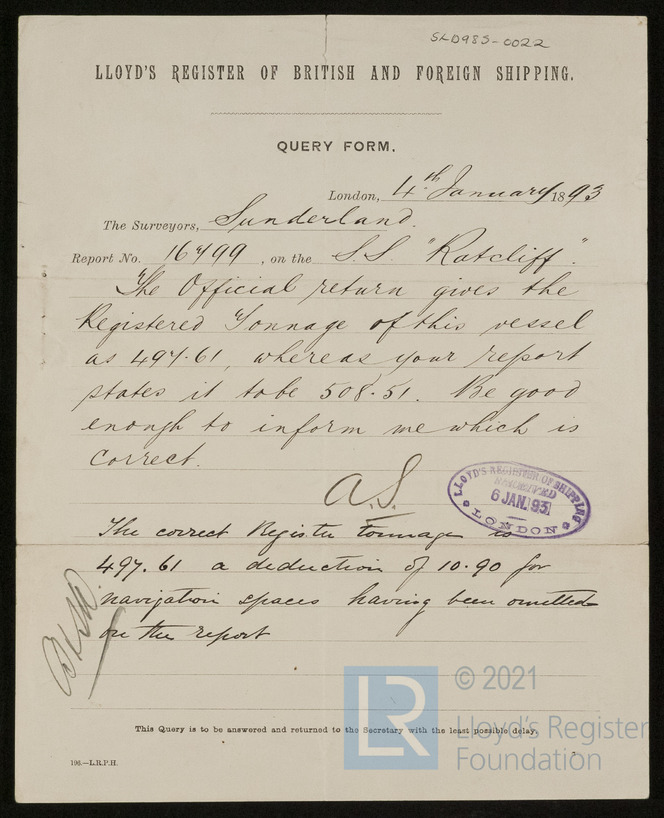 SLD985-0022
LLOYD'S REGISTER OF BRITISH AND FOREIGN SHIPPING.
QUERY FORM.
London, 4th January 1893
The Surveyors, Sunderland.
Report No. 16799, on the S.S. "Ratcliff".
The Official return gives the
Registered Tonnage of this vessel
as 497.61, whereas your report
states it to be 508.51. Be good
enough to inform me which is
correct.
A.S.
LLOYD'S REGISTER OF SHIPPING
RECEIVED
6 JAN. 93
LONDON
The correct Register tonnage is
497.61 a deduction of 10.90 for
navigation spaces having been omitted
on the report
This Query is to be answered and returned to the Secretary with the least possible delay.
196.—L.R.P.H.
LR
© 2021
Lloyd's Register
Foundation